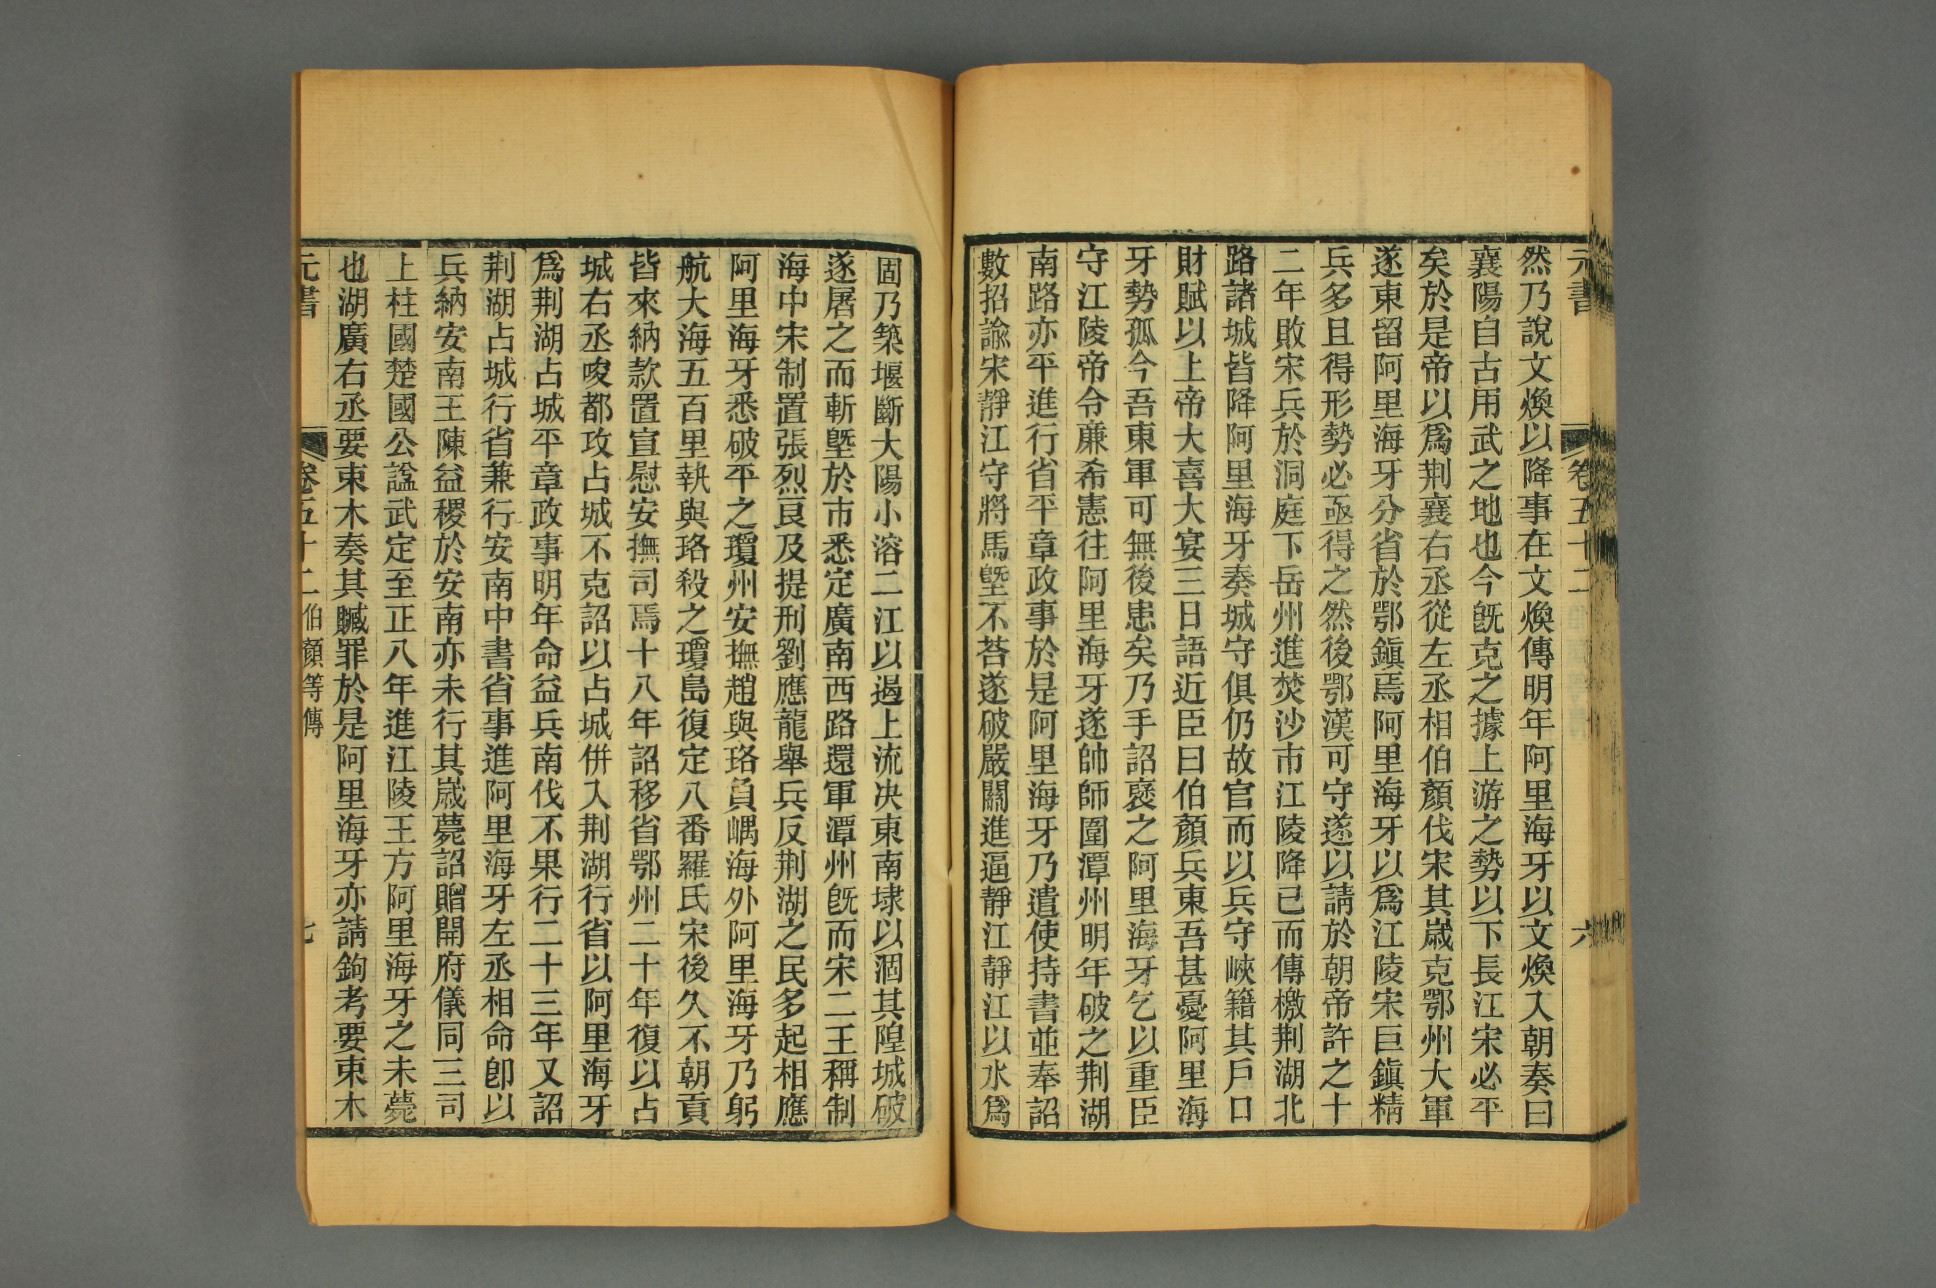 元書 卷五十二 六
然乃說文煥以降事在文煥傳明年阿里海牙以文煥入朝奏曰
襄陽自古用武之地也今旣克之據上游之勢以下長江宋必平
矣於是帝以爲荆襄右丞從左丞相伯顏伐宋其歲克鄂州大軍
遂東留阿里海牙分省於鄂鎭焉阿里海牙以爲江陵宋巨鎭精
兵多且得形勢必亟得之然後鄂漢可守遂以請於朝帝許之十
二年敗宋兵於洞庭下岳州進焚沙市江陵降已而傳檄荆湖北
路諸城皆降阿里海牙奏城守俱仍故官而以兵守峽籍其戶口
財賦以上帝大喜大宴三日語近臣曰伯顏兵東吾甚憂阿里海
牙勢孤今吾東軍可無後患矣乃手詔褒之阿里海牙乞以重臣
守江陵帝令廉希憲往阿里海牙遂帥師圍潭州明年破之荆湖
南路亦平進行省平章政事於是阿里海牙乃遣使持書並奉詔
數招諭宋靜江守將馬塈不荅遂破嚴關進逼靜江靜江以水爲
固乃築堰斷大陽小溶二江以遏上流决東南埭以涸其隍城破
遂屠之而斬塈於市悉定廣南西路還軍潭州旣而宋二王稱制
海中宋制置張烈良及提刑劉應龍舉兵反荆湖之民多起相應
阿里海牙悉破平之瓊州安撫趙與珞負嵎海外阿里海牙乃躬
航大海五百里執與珞殺之瓊島復定八番羅氏宋後久不朝貢
皆來納款置宣慰安撫司焉十八年詔移省鄂州二十年復以占
城右丞唆都攻占城不克詔以占城併入荆湖行省以阿里海牙
爲荆湖占城平章政事明年命益兵南伐不果行二十三年又詔
荆湖占城行省兼行安南中書省事進阿里海牙左丞相命卽以
兵納安南王陳益稷於安南亦未行其歲薨詔贈開府儀同三司
上柱國楚國公諡武定至正八年進江陵王方阿里海牙之未薨
也湖廣右丞要束木奏其贓罪於是阿里海牙亦請鉤考要束木
元書 卷五十二 伯顏等傳 七